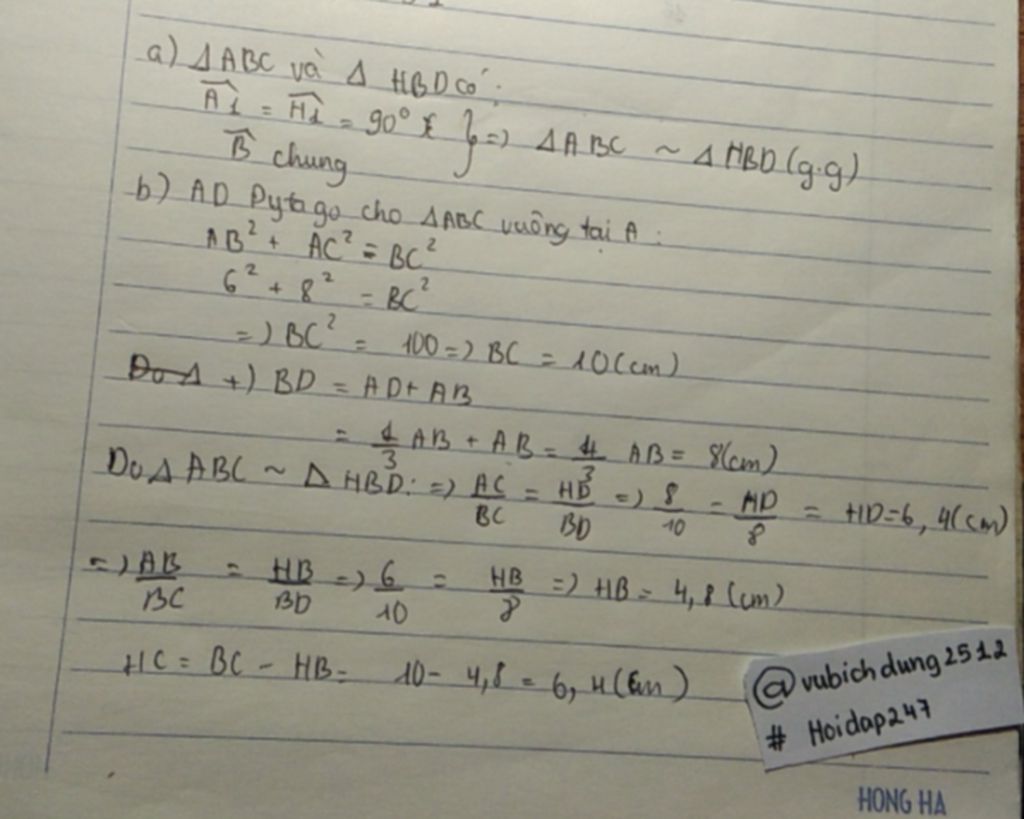 a) ΔABC và Δ HBD có:
Â1 = Ĥ1 = 90° } => ΔABC ~ ΔHBD (g.g)
B̂ chung
b) AD Pytago cho ΔABC vuông tại A:
AB² + AC² = BC²
6² + 8² = BC²
=> BC² = 100 => BC = 10 (cm)
Do Δ +) BD = AD + AB
= 1/3 AB + AB = 4/3 AB = 8(cm)
Do Δ ABC ~ Δ HBD: => AC/BC = HD/BD => 8/10 = HD/8 = HD = 6,4(cm)
=> AB/BC = HB/BD => 6/10 = HB/8 => HB = 4,8 (cm)
HC = BC - HB = 10 - 4,8 = 6,4 (cm)
@vubichdung2512
# Hoidap247
HONG HA